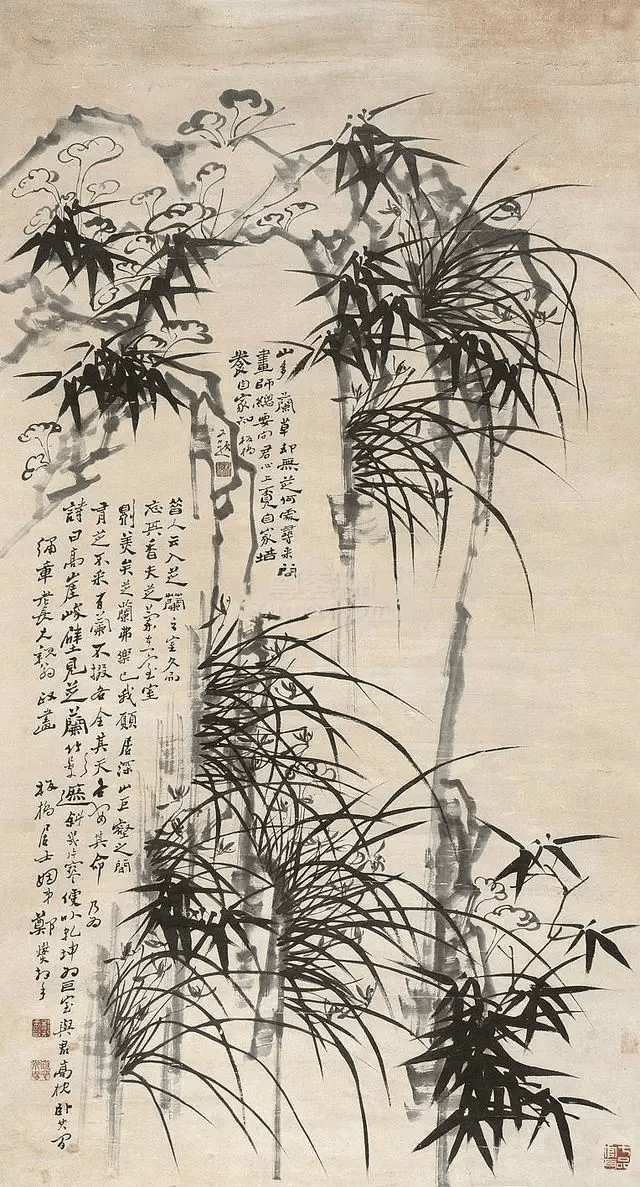 山多蘭草却無芝何處尋來問
畫師總要向君心上覓自家培
養自家知 板橋
又題
昔人云入芝蘭之室久而
忘其香夫芝蘭在室室
則美矣芝蘭弗樂也我願居深山巨壑之間
有芝不采有蘭不掇各全其天各安其命 乃為
詩曰高崖峻壁見芝蘭竹影遮斜幾片寒便以乾坤為巨室與君高枕卧其間
老長兄親翁政畫 板橋居士姻弟鄭燮拜手